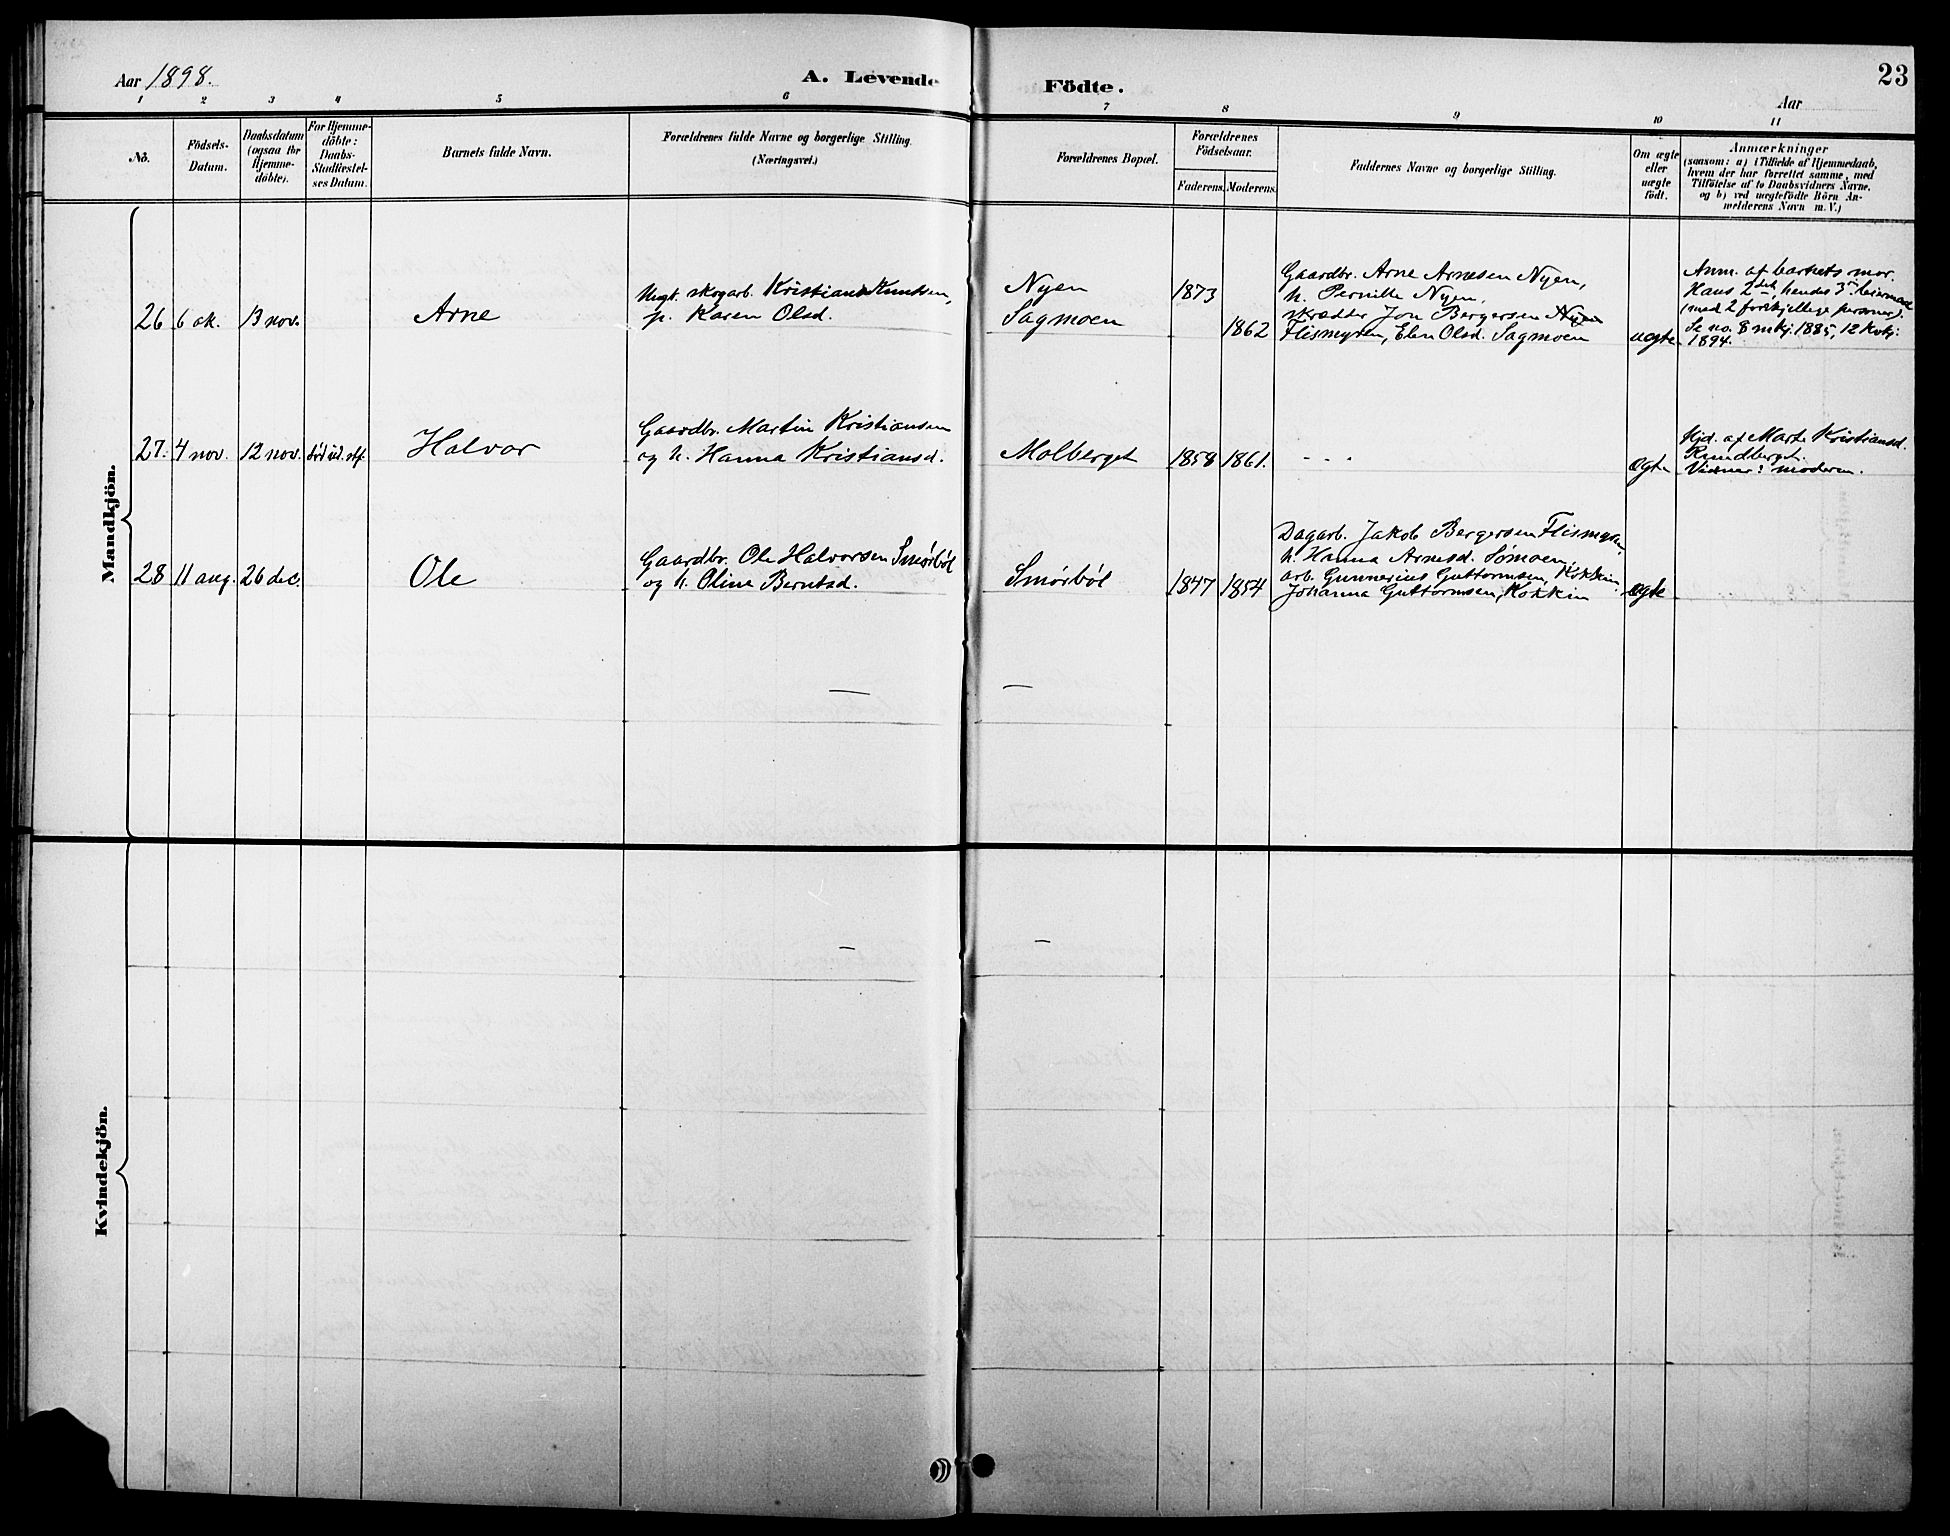 Aar 1898.
A. Levende Födte.
23
Aar
1 2 3 4 5 6 7 8 9 10 11
No.
Födsels-
Datum.
Daabsdatum
(ogsaa for
Hjemme-
döbte).
For Hjemme-
döbte:
Daabs-
Stadfæstel-
ses Datum.
Barnets fulde Navn.
Forældrenes fulde Navne og borgerlige Stilling.
(Næringsvei.)
Forældrenes Bopæl.
Forældrenes
Födselsaar.
Faderens. Moderens.
Faddernes Navne og borgerlige Stilling.
Om ægte
eller
uægte
født.
Anmærkninger
(saasom: a) i Tilfælde af Hjemmedaab,
hvem der har forrettet samme, med
Tilföielse af to Daabsvidners Navne,
og b) ved uægtefödte Börn An-
melderens Navn m. V.)
Mandkjön.
26 6 ok. 13 nov. Arne
Ungk. skogarb. Kristian Knutsen,
p. Karen Olsd.
Nyen
Sagmoen
1873
1862
Gaardbr. Arne Arnesen Nyen,
h. Pernille Nyen,
skrædder Jon Bergersen Nyen
Flismyren, Elen Olsd. Sagmoen
uegte
Anm. af barnets mor.
Hans 2det, hendes 3die leiermaal
(med 2 forskjellige personer).
Se no. 8 mkj. 1885, 12 kvkj.
1894.
27. 4 nov. 12 nov. död ud. stf. Halvor
Gaardbr. Martin Kristiansen
og h. Hanna Kristiansd.
Molberget
1858 1861.
- - -
egte
Hjd. af Marte Kristiansd.
Rundberget.
Vidner: moderen.
28 11 aug. 26 dec. Ole
Gaardbr. Ole Halvorsen Smörböl
og h. Oline Berntsd.
Smörböl
1847 1854
Dagarb. Jakob Bergersen Flismyren,
h. Hanna Arnesd. Sömoen,
arb. Gunnerius Guttormsen, Kokkin
Johanna Guttormsen, Kokkin
egte
Kvindekjön.